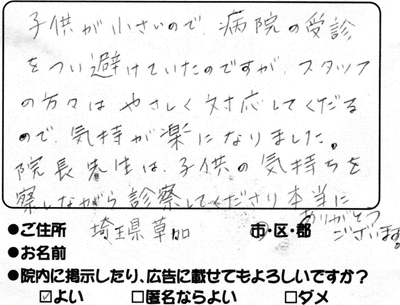 子供が小さいので、病院の受診
をつい避けていたのですが、スタッフ
の方々は やさしく対応してくだる
ので、気持が楽になりました。
院長先生は、子供の気持ちを
察しながら診察してくださり本当に
ありがとう
ございます。
●ご住所 埼玉県草加 市・区・郡
●お名前
●院内に掲示したり、広告に載せてもよろしいですか?
☑よい □匿名ならよい □ダメ